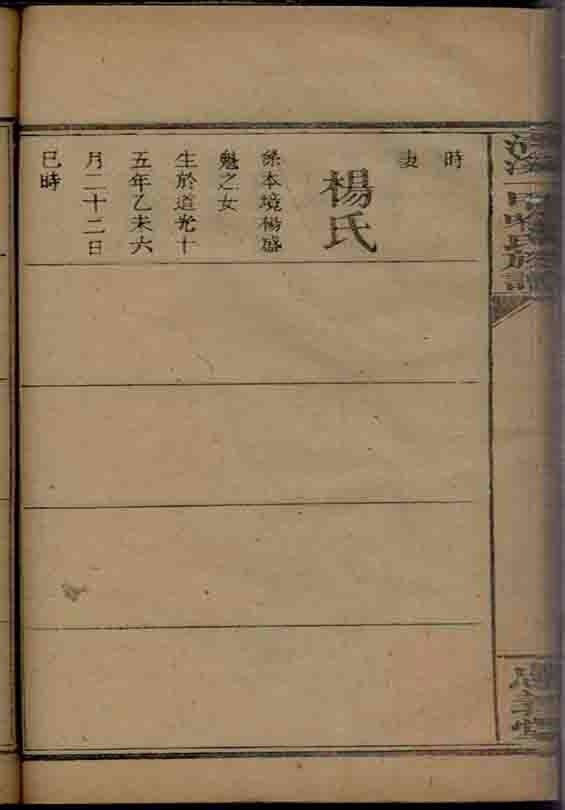 時
妻
楊氏
係本境楊盛
魁之女
生於道光十
五年乙未六
月二十二日
巳時
氏族譜
堂